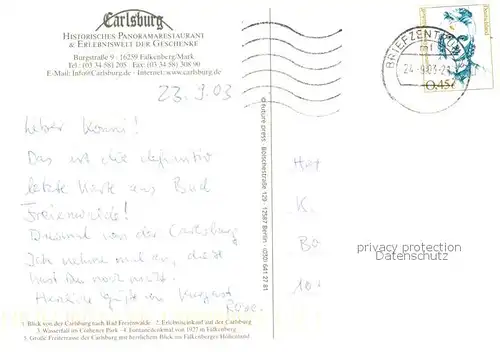 Carlsburg
HISTORISCHES PANORAMARESTAURANT
& ERLEBNISWELT DER GESCHENKE
Burgstraße 9 · 16259 Falkenberg/Mark
Tel.: (03 34 58) 205 Fax: (03 34 58) 308 90
E-Mail: Info@Carlsburg.de · Internet: www.carlsburg.de
23.9.03
Lieber Konni!
Das ist die definitiv
letzte Karte aus Bad
Freienwalde!
Diesmal von der Carlsburg
Ich nehme mal an, diese
hast Du noch nicht.
Herzliche Grüße
1. Blick von der Carlsburg nach Bad Freienwalde 2. Erlebniseinkauf auf der Carlsburg
3. Wasserfall im Cöthener Park 4. Fontanedenkmal von 1927 in Falkenberg
5. Große Freiterrasse der Carlsburg mit herrlichem Blick ins Falkenberger Höhenland
© future press · Bölschestraße 129 · 12587 Berlin · (030) 641 27 81
BRIEFZENTRUM
24.-9.03-2
Deutschland
0,45€
K.
privacy protection
Datenschutz